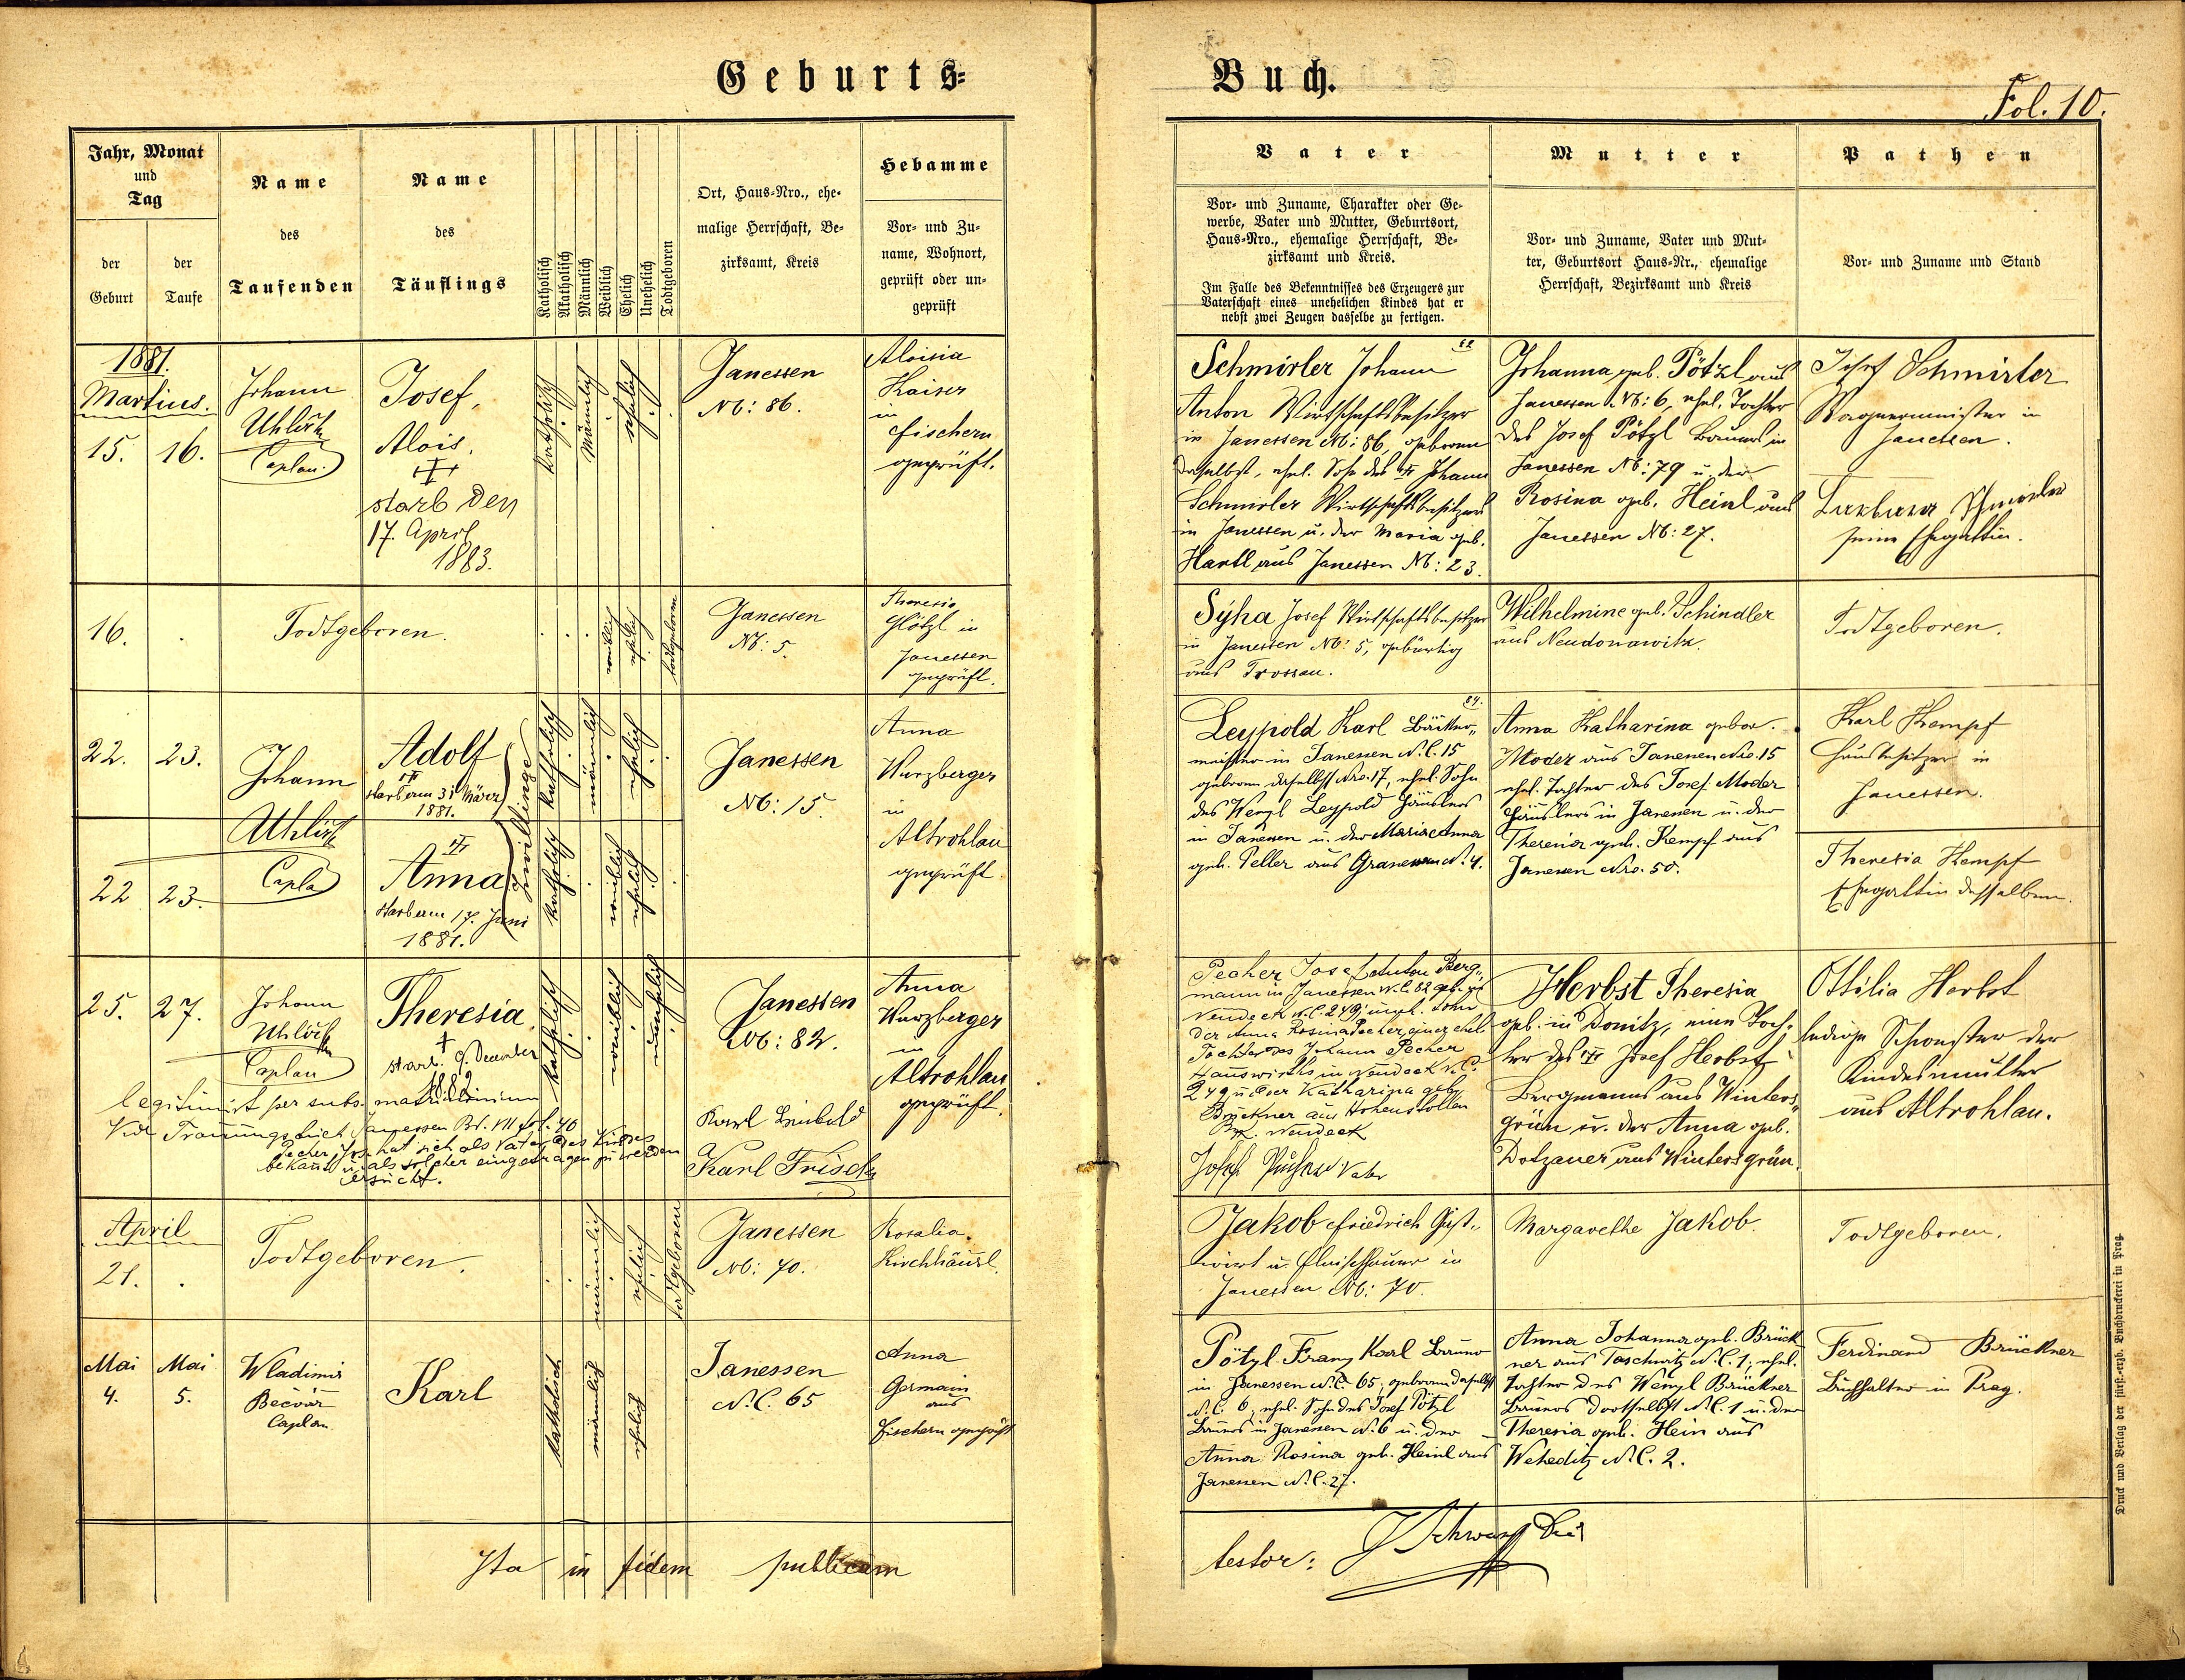 Geburts=
Buch.
Fol. 10.
Jahr, Monat
und
Tag
der
Geburt
der
Taufe
Name
des
Taufenden
Name
des
Täuflings
Katholisch
Akatholisch
Männlich
Weiblich
Ehelich
Unehelich
Todtgeboren
Ort, Haus=Nro., ehe=
malige Herrschaft, Be=
zirksamt, Kreis
Hebamme
Vor= und Zu=
name, Wohnort,
geprüft oder un=
geprüft
Vater
Vor= und Zuname, Charakter oder Ge=
werbe, Vater und Mutter, Geburtsort,
Haus=Nro., ehemalige Herrschaft, Be=
zirksamt und Kreis.
Im Falle des Bekenntnisses des Erzeugers zur
Vaterschaft eines unehelichen Kindes hat er
nebst zwei Zeugen dasselbe zu fertigen.
Mutter
Vor= und Zuname, Vater und Mut=
ter, Geburtsort Haus=Nr., ehemalige
Herrschaft, Bezirksamt und Kreis
Pathen
Vor= und Zuname und Stand
1881.
Martius.
15. 16.
Johann
Uhlirk
Caplan.
Josef,
Alois.
starb den
17. April
1883.
katholisch
männlich
ehelich
Janessen
N: 86.
Aloisia
Kaiser
in
Fischern
geprüft.
Schmirler Johann
Anton Wirtschaftsbesitzer
in Janessen N: 86, geboren
daselbst, ehel. Sohn des Johann
Schmirler Wirtschaftsbesitzers
in Janessen u. der Maria geb.
Hartl aus Janessen N: 23.
Johanna geb. Pötzl aus
Janessen N: 6, ehel. Tochter
des Josef Pötzl Bauers in
Janessen N: 79 u. der
Rosina geb. Heinl aus
Janessen N: 27.
Josef Schmirler
Wagnermeister in
Janessen.
Barbara Schmirler
seine Ehegattin.
16. .
Todtgeboren.
weiblich
ehelich
todtgeboren
Janessen
N: 5.
Theresia
Glötzl in
Janessen
geprüft.
Syha Josef Wirtschaftsbesitzer
in Janessen N: 5, gebürtig
aus Trossau.
Wilhelmine geb. Schindler
aus Neudonawitz.
Todtgeboren.
22. 23.
Johann
Uhlirk
Caplan
Adolf
starb am 31 März
1881.
Zwillinge
katholisch
männlich
ehelich
Janessen
N: 15.
Anna
Wurzberger
in
Altrohlau
geprüft.
Leypold Karl Bäcker„
meister in Janessen N.C. 15
geboren daselbst Nro. 17, ehel. Sohn
des Wenzl Leypold Häuslers
in Janessen u. der Maria Anna
geb. Peller aus Granesau N. 4.
Anna Katharina gebor.
Moder aus Janessen Nro. 15
ehel. Tochter des Josef Moder
Häuslers in Janessen u. der
Theresia geb. Kempf aus
Janessen Nro. 50.
Karl Kempf
Hausbesitzer in
Janessen.
Theresia Kempf
Ehegattin desselben.
22 23.
Anna
starb am 17. Juni
1881.
katholisch
weiblich
ehelich
25. 27.
Johann
Uhlirk
Caplan
Theresia
starb. 9. December
1882
katholisch
weiblich
unehelich
legitimirt per subs. matrimonium
Vide Trauungsbuch Janessen Bd. VII fol. 40
Pecher Jos. hat sich als Vater des Kindes
bekannt u. als solcher eingetragen zu werden
ersucht.
Janessen
N: 82.
Karl Leinbold
Karl Frisch
Anna
Wurzberger
in
Altrohlau
geprüft.
Pecher Josef Anton Berg„
mann in Janessen N.C. 82 geb. zu
Neudeck N.C. 249, unehl. Sohn
der Anna Rosina Pecher, einer ehel.
Tochter des Johann Pecher
Hauswirths in Neudeck N.C.
249 u. der Katharina geb.
Brückner aus Hohenstollen
Bzk. Neudeck
Josef Pecher Vater
Herbst Theresia
geb. in Donitz, eine Toch„
ter des Josef Herbst
Bergmanns aus Winters„
grün u. der Anna geb.
Dotzauer aus Wintersgrün.
Ottilia Herbst
ledige Schwester der
Kindesmutter
aus Altrohlau.
April
21. .
Todtgeboren.
männlich
ehelich
todtgeboren
Janessen
N: 70.
Rosalia
Kirchhäusl.
Jakob Friedrich Gast„
wirt u. Fleischhauer in
Janessen N: 70.
Margarethe Jakob.
Todtgeboren.
Mai Mai
4. 5.
Wladimir
Bečvář
Caplan
Karl
katholisch
männlich
ehelich
Janessen
N.C. 65
Anna
Germain
aus
Fischern geprüft
Pötzl Franz Karl Bauer
in Janessen N.C. 65, geboren daselbst
N.C. 6, ehel. Sohn des Josef Pötzl
Bauers in Janessen N. 6 u. der
Anna Rosina geb. Heinl aus
Janessen N.C. 27.
Anna Johanna geb. Brück
ner aus Taschwitz N.C. 1, ehel.
Tochter des Wenzl Brückner
Bauers dortselbst N.C. 1 u. der
Theresia geb. Hein aus
Weheditz N.C. 2.
Ferdinand Brückner
Buchhalter in Prag.
Ita in fidem publicam
testor:
Druck und Verlag der fürst.=erzb. Buchdruckerei in Prag.